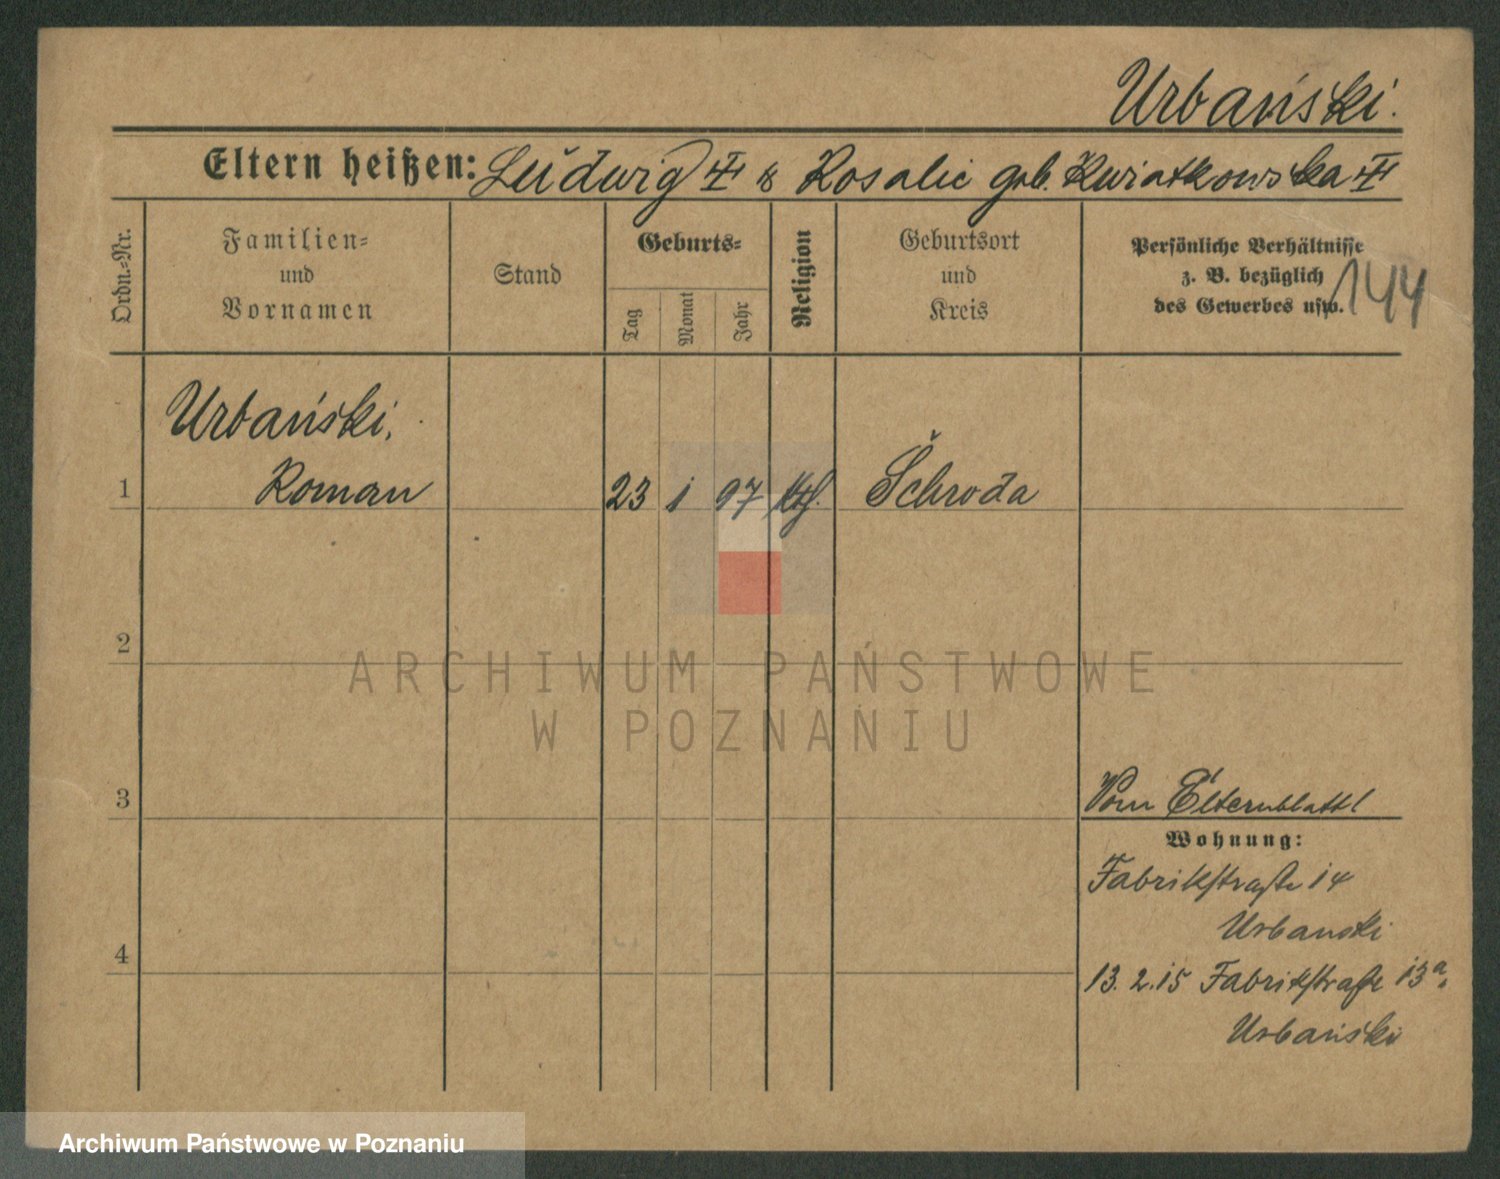 Urbański.
Eltern heißen: Ludwig & Rosalie geb. Kwiatkowska
Ordn.=Nr.
Familien=
und
Vornamen
Stand
Geburts=
Tag
Monat
Jahr
Religion
Geburtsort
und
Kreis
Persönliche Verhältnisse
z. B. bezüglich
des Gewerbes usw.
144
Urbański,
1 Roman 23 1 97 kth. Schroda
2
ARCHIWUM PAŃSTWOWE
W POZNANIU
3
Vom Elternblatt
Wohnung:
Fabrikstraße 14
Urbanski
4
13. 2. 15 Fabrikstraße 13a.
Urbański
Archiwum Państwowe w Poznaniu